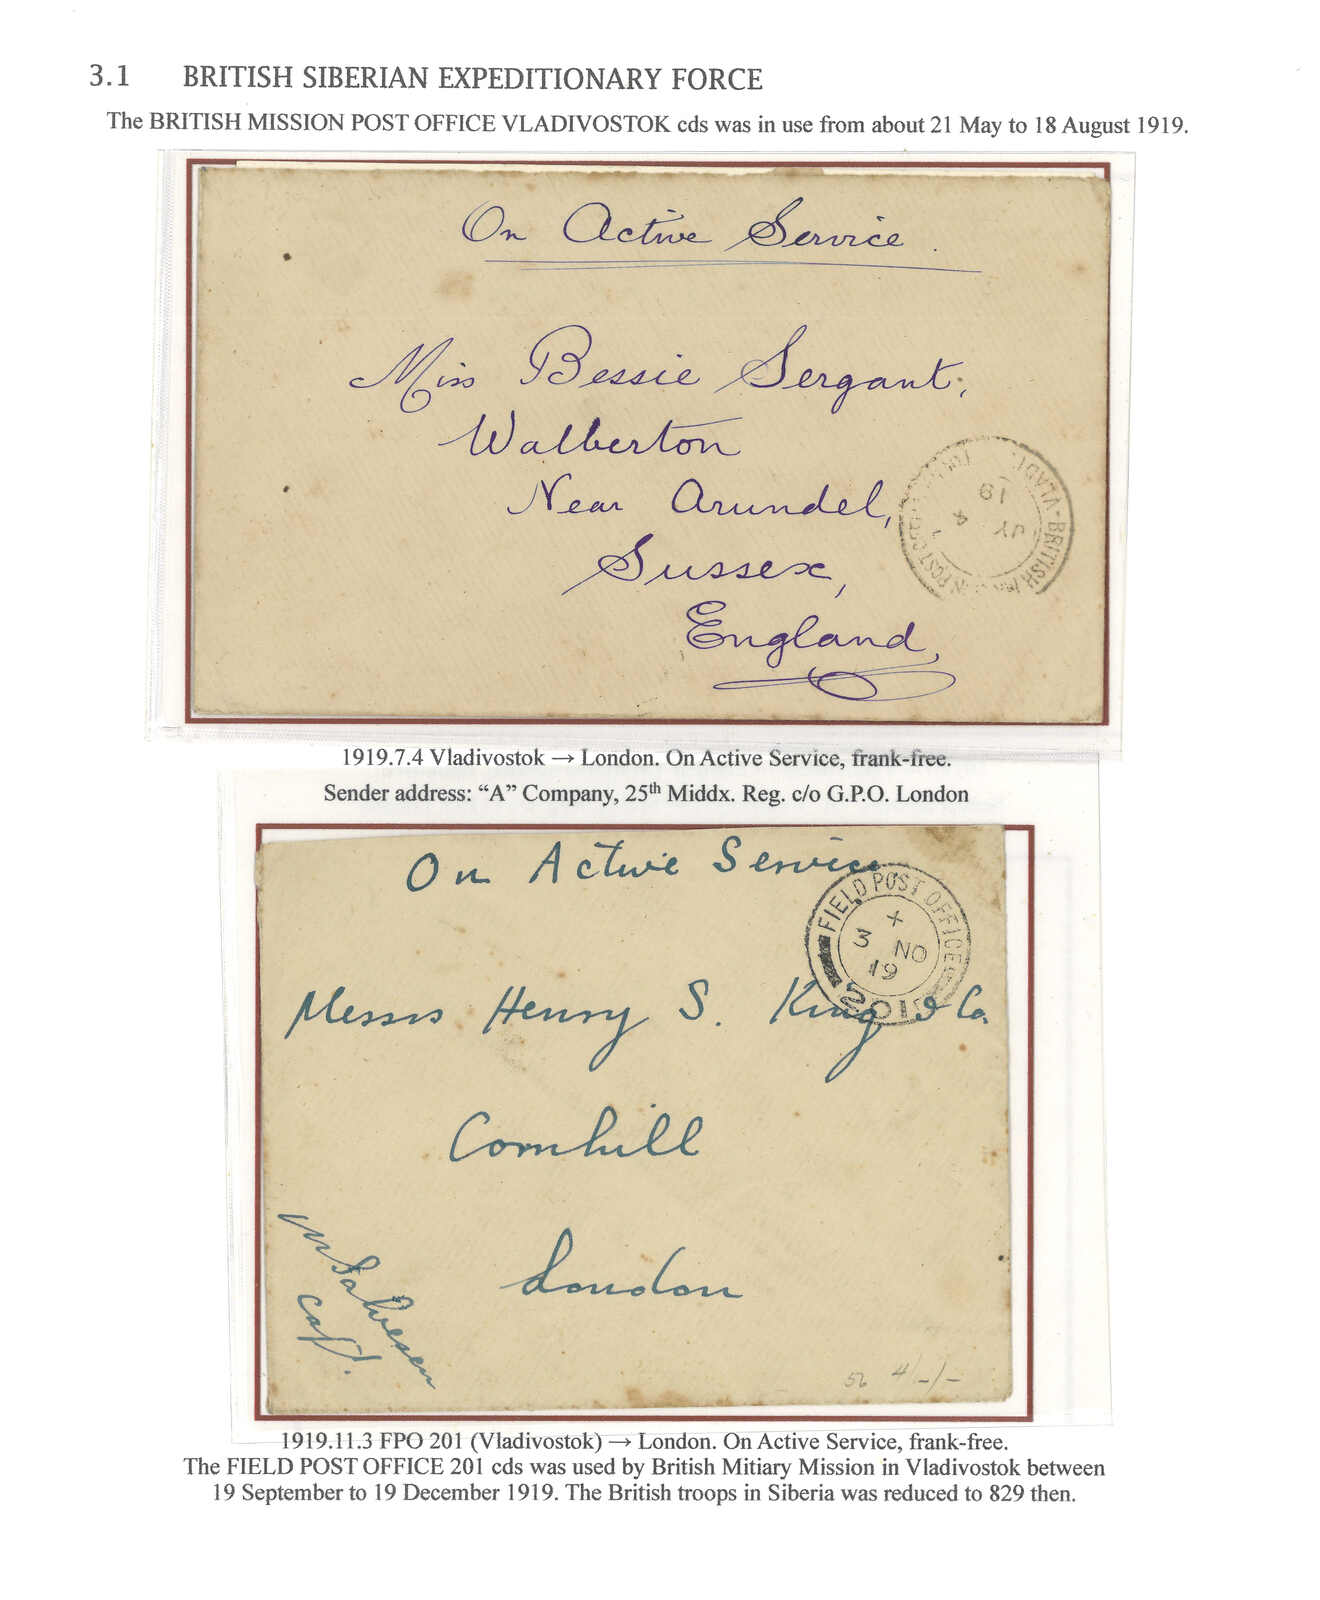 3.1 BRITISH SIBERIAN EXPEDITIONARY FORCE
The BRITISH MISSION POST OFFICE VLADIVOSTOK cds was in use from about 21 May to 18 August 1919.
On Active Service.
Miss Bessie Sergant,
Walberton
Near Arundel,
Sussex,
England,
BRITISH
POST
VLADI
JY 4
19
1919.7.4 Vladivostok → London. On Active Service, frank-free.
Sender address: “A” Company, 25th Middx. Reg. c/o G.P.O. London
On Active Service
FIELD POST OFFICE
+
3 NO
19
201
Messrs Henry S. King & Co.
Cornhill
London
Salvesen
Capt.
56 4/-/-
1919.11.3 FPO 201 (Vladivostok) → London. On Active Service, frank-free.
The FIELD POST OFFICE 201 cds was used by British Mitiary Mission in Vladivostok between
19 September to 19 December 1919. The British troops in Siberia was reduced to 829 then.